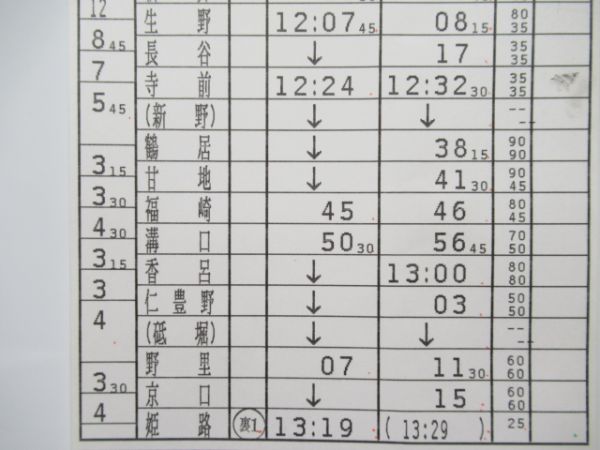 12
生 野 12:07 45 08 15 80 35
8 45
長 谷 ↓ 17 35 35
7
寺 前 12:24 12:32 30 35 35
5 45
(新 野) ↓ ↓ -- --
鶴 居 ↓ 38 15 90 90
3 15
甘 地 ↓ 41 30 90 45
3 30
福 崎 45 46 80 45
4 30
溝 口 50 30 56 45 70 50
3 15
香 呂 ↓ 13:00 80 80
3
仁 豊 野 ↓ 03 50 50
4
(砥 堀) ↓ ↓ -- --
野 里 07 11 30 60 60
3 30
京 口 ↓ 15 60 60
4
姫 路 裏1 13:19 ( 13:29 ) 25